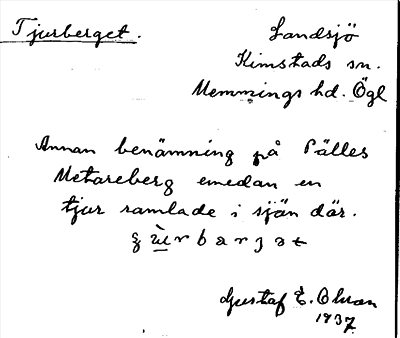 Tjurberget.
Landsjö
Kimstads sn.
Memmings hd. Ögl
Annan benämning på Pälles
Metareberg emedan en
tjur ramlade i sjön där.
Gustaf E. Olsson
1937